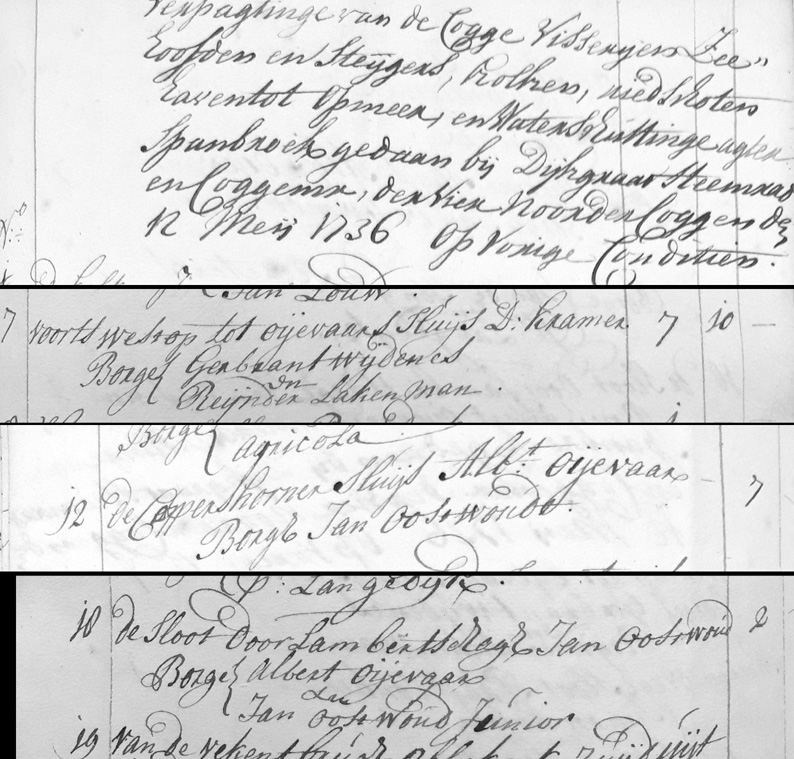 Verpagtinge van de Cogge Visserijen Zee"
hoofden en Steijgers, kolken, riedschoten
Lavendot Opmeer, en Waterschuttinge agter
Spanbroek gedaan bij Dijkgraaf Heemraad
en Coggemr, der Vier Noorder Coggen de
12 Meij 1736 op Vorige Conditien.
Jan Louw.
7 voorts westop tot oijevaars Sluijs D: Kramer 7 10 —
Borge { Gerbrant wijdenes
Reijnder Lakenman.
Borge { agricola
12 de Coppershorner Sluijs Alb:t oijevaar - 7
Borge Jan Oostwoudt.
P: Langedijk.
18 de Sloot door Lambertschage Jan Oostwoud 2
Borge { Albert oijevaar
Jan Oostwoud Junior
19 van de